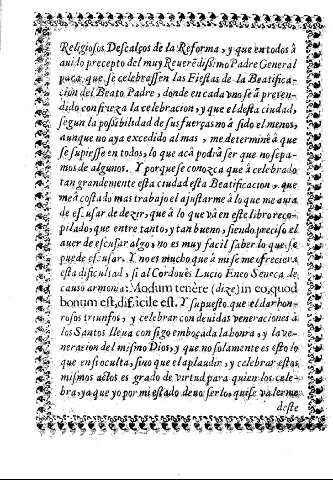 Religiosos Descalços de la Reforma, y que en todos â
auido precepto del muy Reuerẽdissimo Padre General
para que se celebrassen las Fiestas de la Beatifica-
cion del Beato Padre, donde en cada vno se â preten-
dido con fuerza la celebracion, y que el desta ciudad,
segun la possibilidad de sus fuerças no â sido el menos,
aunque no aya excedido al mas, me determinè â que
se supiesse en todos, lo que acà podrà ser que no sepa-
mos de algunos. Y porque se conozca que â celebrado
tan grandemente esta ciudad esta Beatificacion, que
me â costado mas trabajo el ajustarme â lo que me auia
de escusar de dezir, que â lo que và en este libro reco-
pilado, que entre tanto, y tan bueno, siendo preciso el
auer de escusar algo, no es muy facil saber lo que se
puede escusar. Y no es mucho que â mi se me ofreciera
esta dificultad, si al Cordouès Lucio Eneo Seneca le
causò armonia: Modum tenêre (dize) in eo, quod
bonum est, dificile est. Y supuesto que el dar hon-
rosos triunfos, y celebrar con deuidas veneraciones â
los Santos lleua consigo embocada la honra, y la ve-
neracion del mismo Dios, y que no solamente es esto lo
que ensi oculta, sino que el aplaudir, y celebrar estos
mismos actos es grado de virtud para quien los cele-
bra, ya que yo por mi estado de no serlo, quise valerme
deste